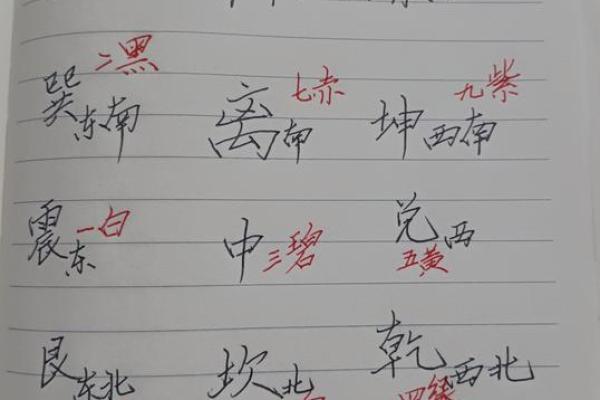 巽东南 二黑 离南 七赤 坤西南 九紫
震东 一白 中 三碧 兑西 五黄
艮东北 坎北 乾西北 四绿